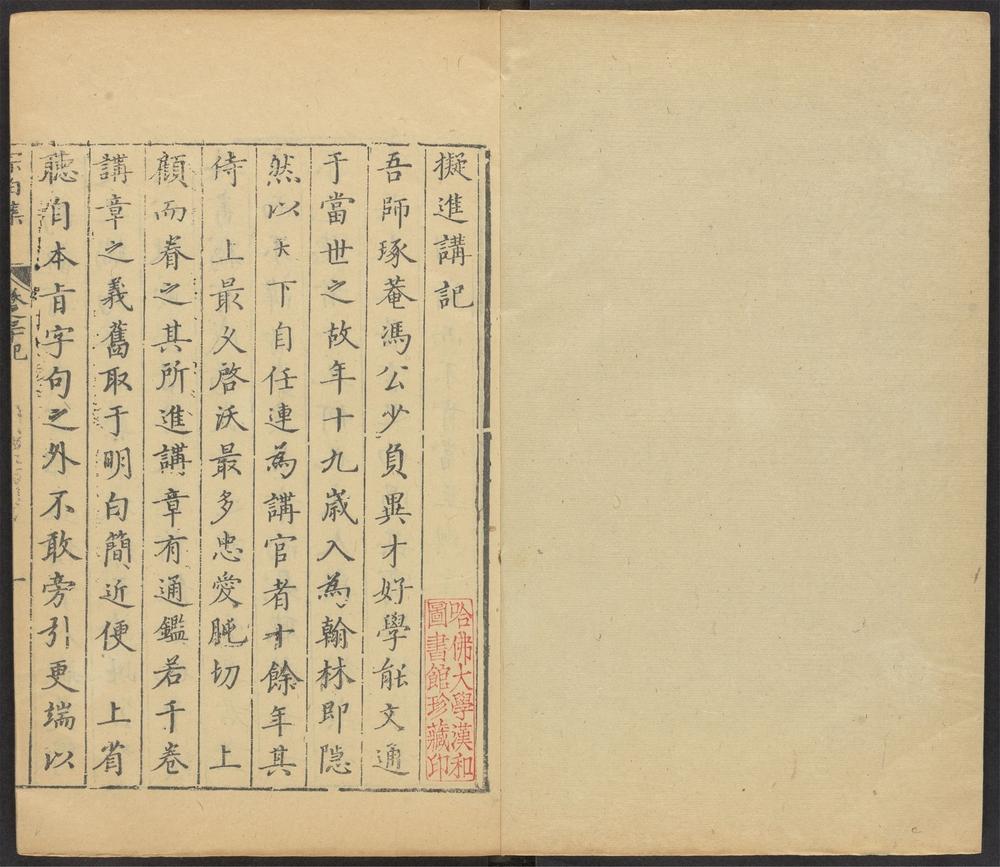 擬進講記
吾師琢菴馮公少負異才好學能文通
于當世之故年十九歲入為翰林即隱
然以天下自任連為講官者十餘年其
侍　上最久啓沃最多忠愛肫切　上
顧而眷之其所進講章有通鑑若干卷
講章之義舊取于明白簡近便　上省
聽自本㫖字句之外不敢旁引更端以
哈佛大學漢和
圖書館珍藏印